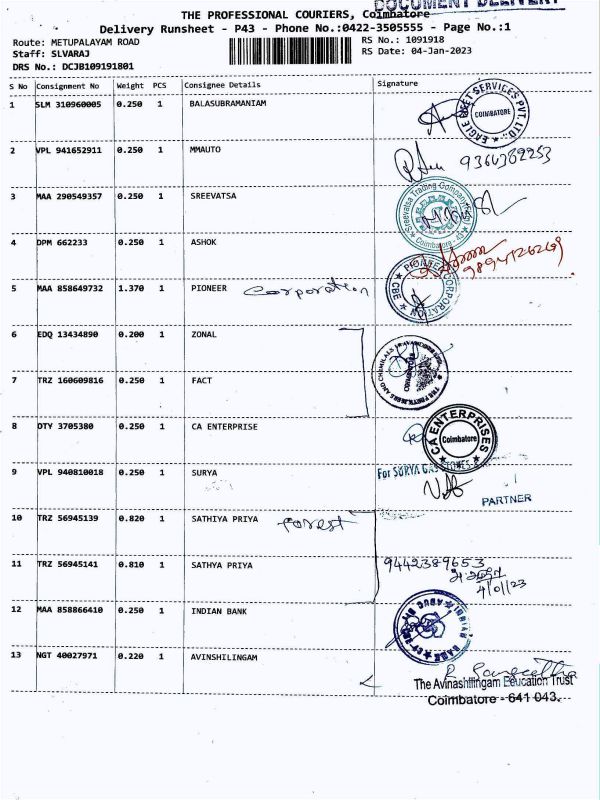 DOCUMENT DELIVERY
THE PROFESSIONAL COURIERS, Coimbatore
Delivery Runsheet - P43 - Phone No.:0422-3505555 - Page No.:1
Route: METUPALAYAM ROAD
RS No.: 1091918
Staff: SLVARAJ
RS Date: 04-Jan-2023
DRS No.: DCJB109191801
S No Consignment No Weight PCS Consignee Details Signature
1 SLM 310960005 0.250 1 BALASUBRAMANIAM
EAGLE FLEET SERVICES PVT. LTD.
COIMBATORE
2 VPL 941652911 0.250 1 MMAUTO
9366382253
3 MAA 290549357 0.250 1 SREEVATSA
Sreevatsa Trading Company
Coimbatore
4 DPM 662233 0.250 1 ASHOK
5 MAA 858649732 1.370 1 PIONEER Corporation
PIONEER CORPORATION
CBE
6 EDQ 13434890 0.200 1 ZONAL
7 TRZ 160609816 0.250 1 FACT
8 DTY 3705380 0.250 1 CA ENTERPRISE
CA ENTERPRISES
Coimbatore
9 VPL 940810018 0.250 1 SURYA
For SURYA GAS
PARTNER
10 TRZ 56945139 0.820 1 SATHIYA PRIYA Forest
11 TRZ 56945141 0.810 1 SATHYA PRIYA
9442389653
4/01/23
12 MAA 858866410 0.250 1 INDIAN BANK
INDIAN BANK
13 NGT 40027971 0.220 1 AVINSHILINGAM
R. Sangeetha
The Avinashilingam Education Trust
Coimbatore - 641 043.